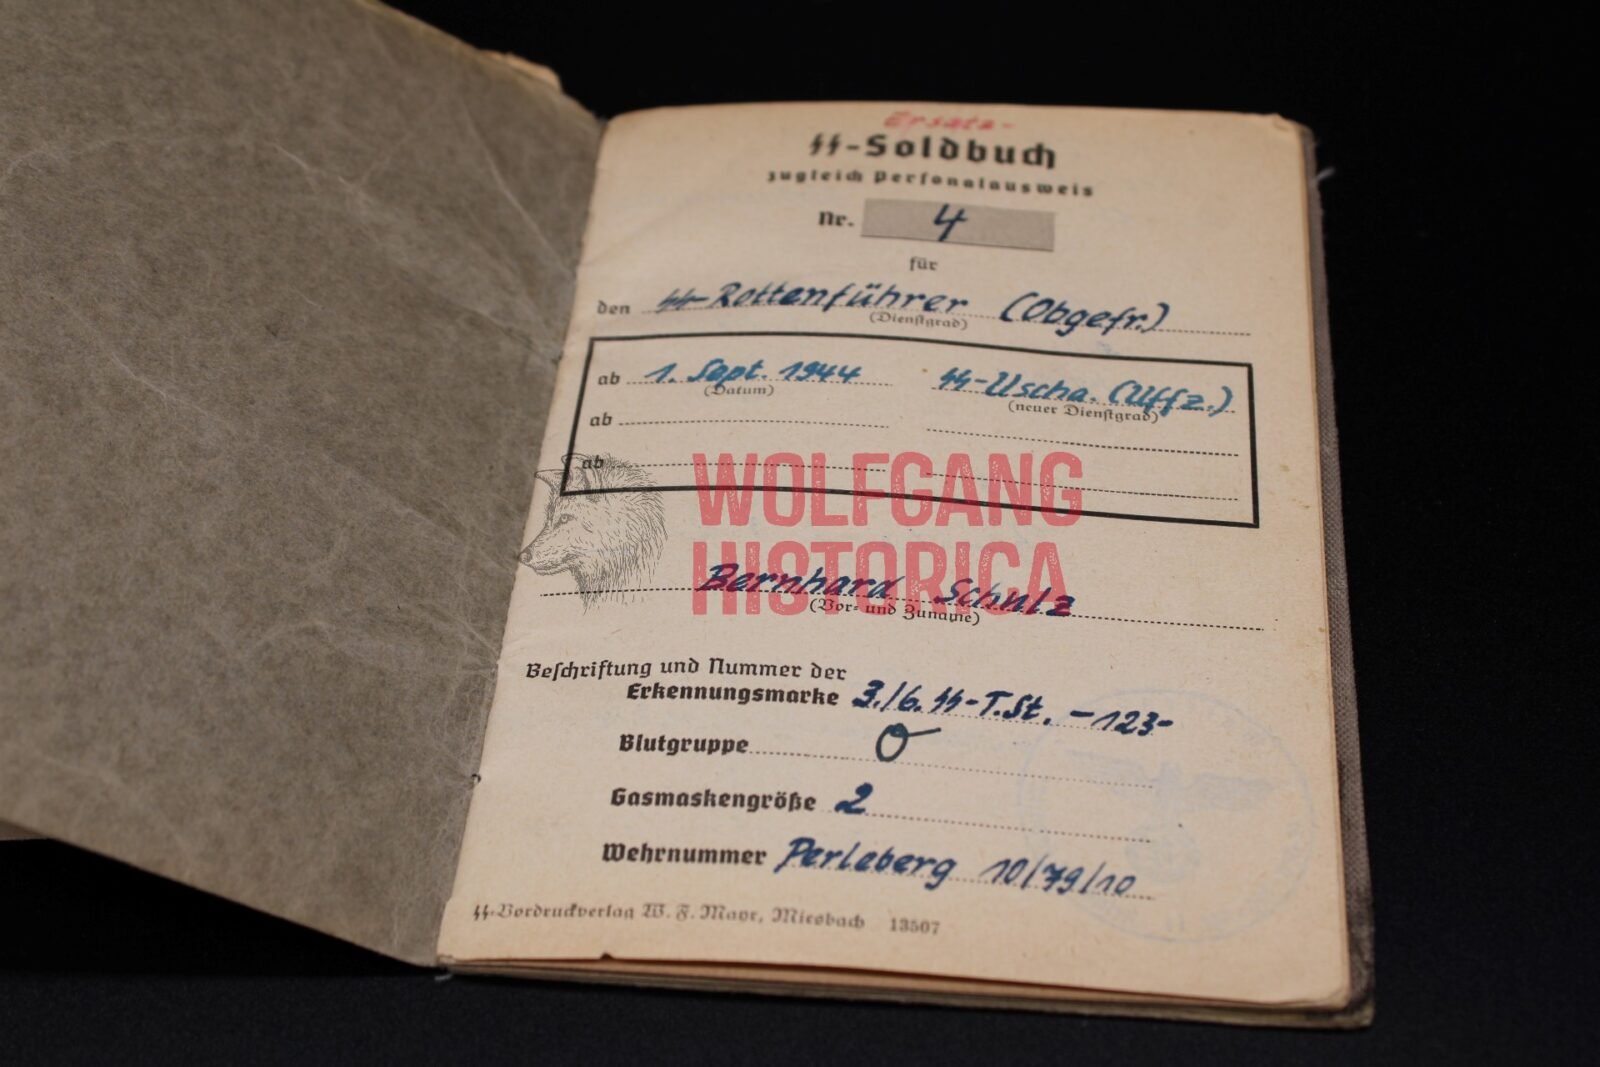 Ersatz-
ᛋᛋ-Soldbuch
zugleich Personalausweis
Nr. 4
für
den ᛋᛋ-Rottenführer (Obgefr.)
(Dienstgrad)
ab 1. Sept. 1944 ᛋᛋ-Uscha. (Uffz.)
(Datum) (neuer Dienstgrad)
ab
ab
WOLFGANG
HISTORICA
Bernhard Schulz
(Vor- und Zuname)
Beschriftung und Nummer der
Erkennungsmarke 3./6. ᛋᛋ-T.St. -123-
Blutgruppe O
Gasmaskengröße 2
Wehrnummer Perleberg 10/79/10
ᛋᛋ-Vordruckverlag W. F. Mayr, Miesbach 13507